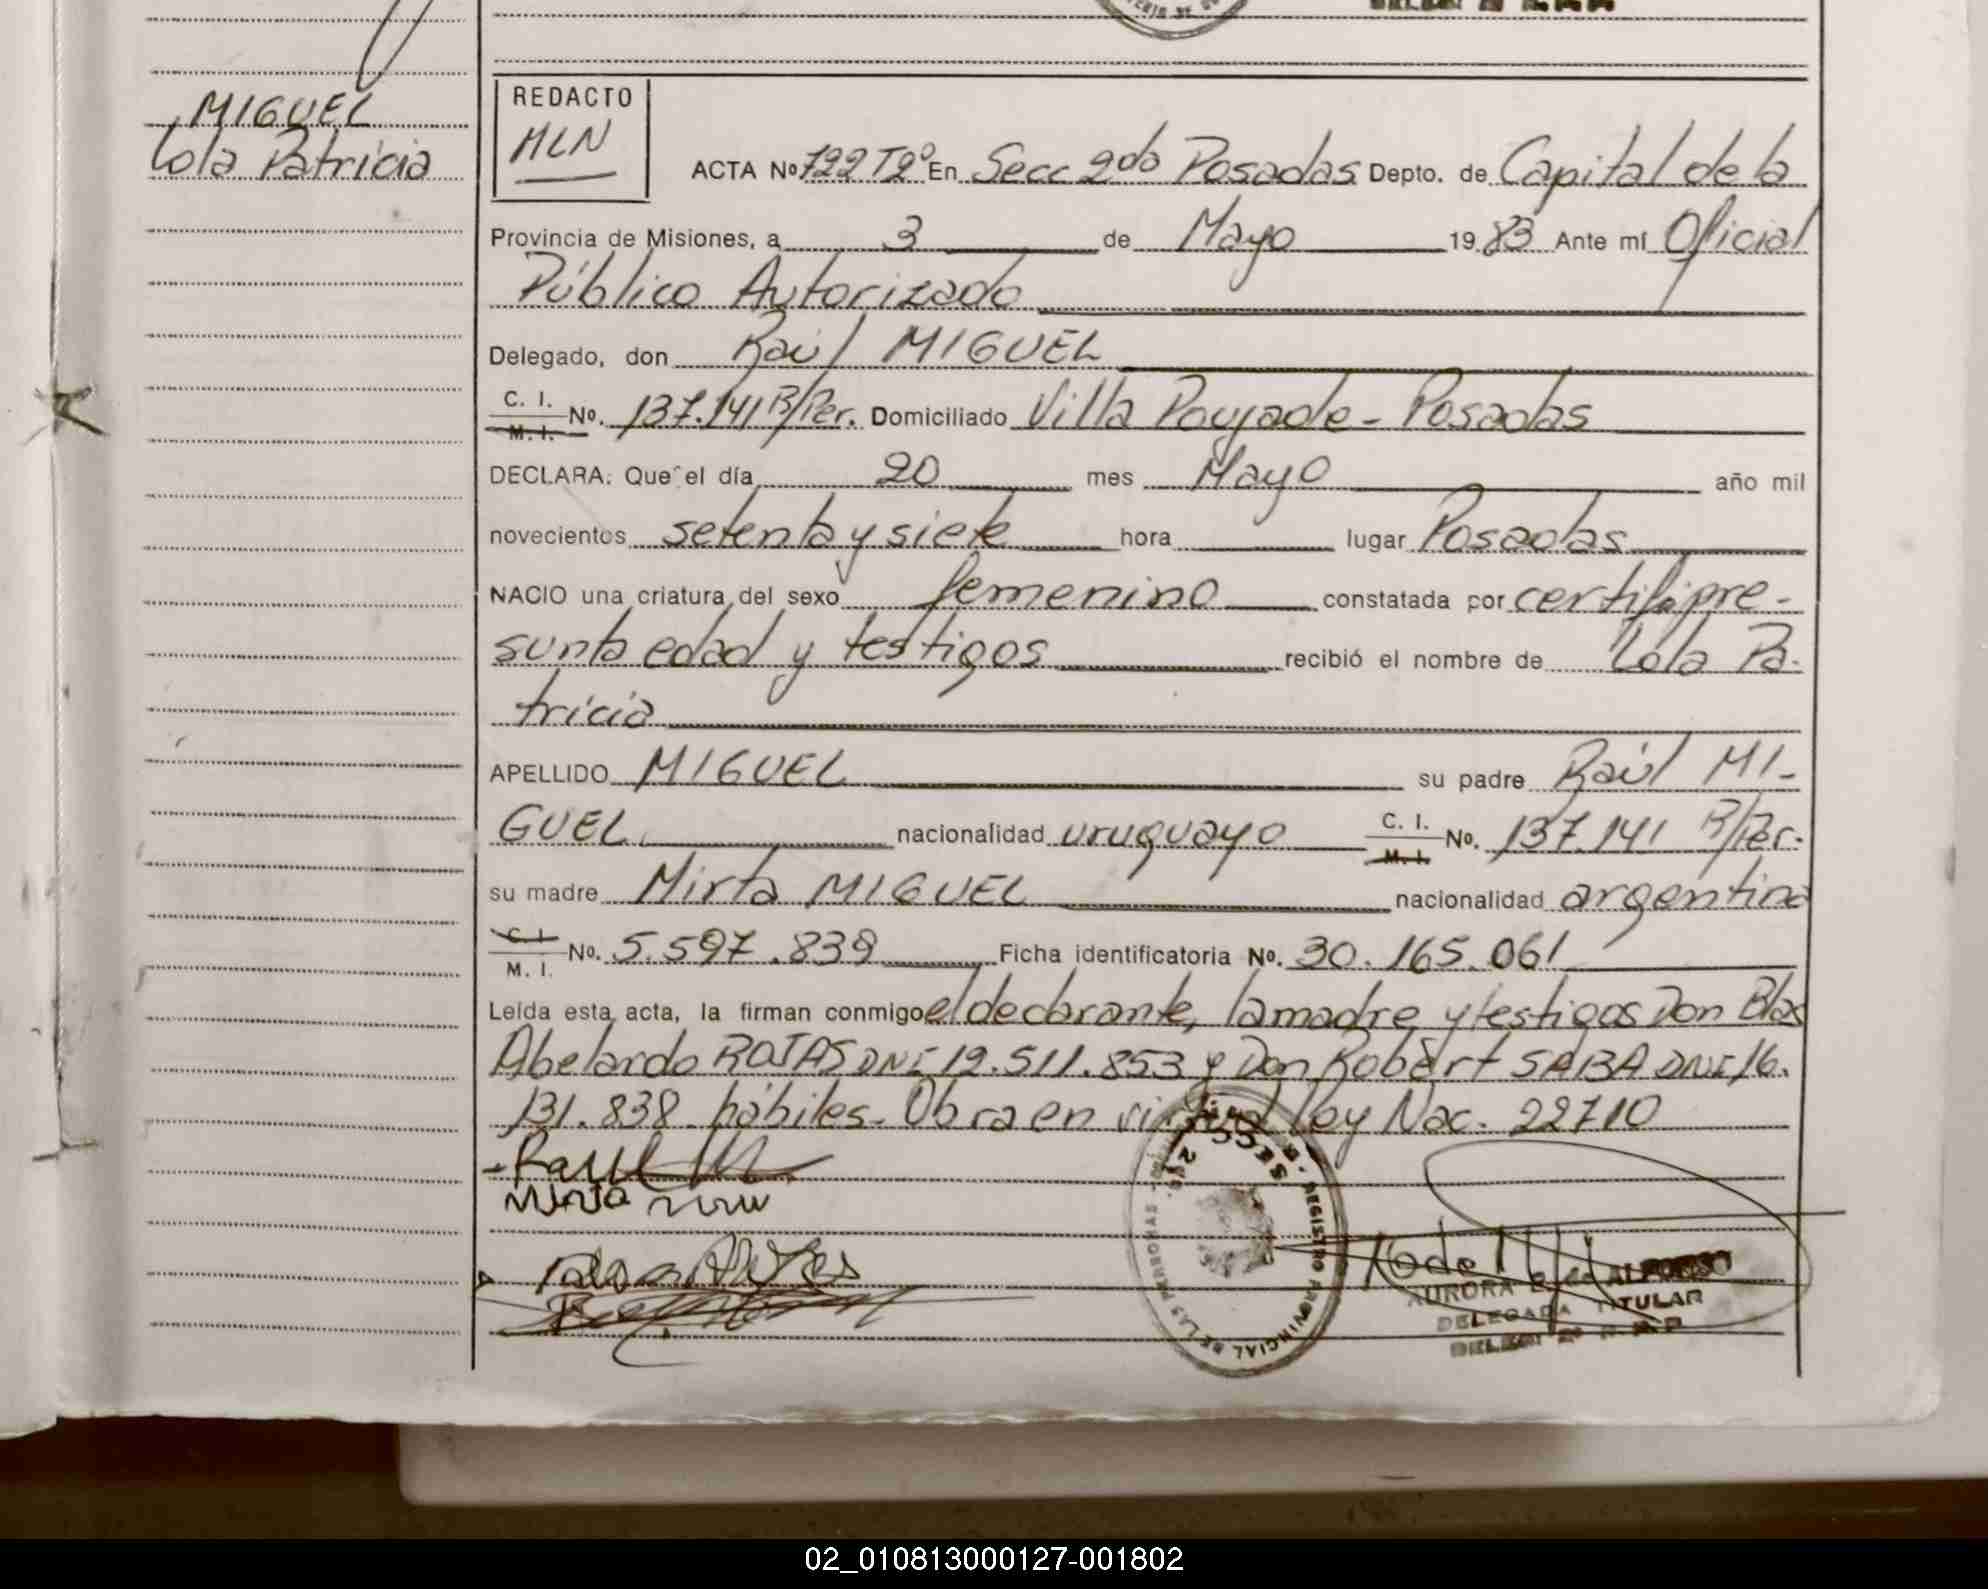 MIGUEL
Lola Patricia
REDACTO
MLN
ACTA Nº 722 Tº2º En Secc 2do Posadas Depto. de Capital de la
Provincia de Misiones, a 3 de Mayo 19 83 Ante mí Oficial
Público Autorizado
Delegado, don Raúl MIGUEL
C. I. M. I. Nº. 137.141 R/Per. Domiciliado Villa Poujade - Posadas
DECLARA: Que el día 20 mes Mayo año mil
novecientos setenta y siete hora lugar Posadas
NACIO una criatura del sexo femenino constatada por certif. pre-
sunta edad y testigos recibió el nombre de Lola Pa-
tricia
APELLIDO MIGUEL su padre Raúl MI-
GUEL nacionalidad uruguayo C. I. M. I. Nº. 137.141 R/Per.
su madre Mirta MIGUEL nacionalidad argentina
C. I. M. I. Nº. 5.597.839 Ficha identificatoria Nº. 30.165.061
Leída esta acta, la firman conmigo el declarante, la madre y testigos Don Blas
Abelardo ROJAS DNI 12.511.853 y Don Robert SABA DNI 16.
131.838 hábiles. Obra en virtud ley Nac. 22710
Raúl
Mirta
REGISTRO PROVINCIAL DE LAS PERSONAS
AURORA E. de ALFONSO
DELEGADA TITULAR
02_010813000127-001802